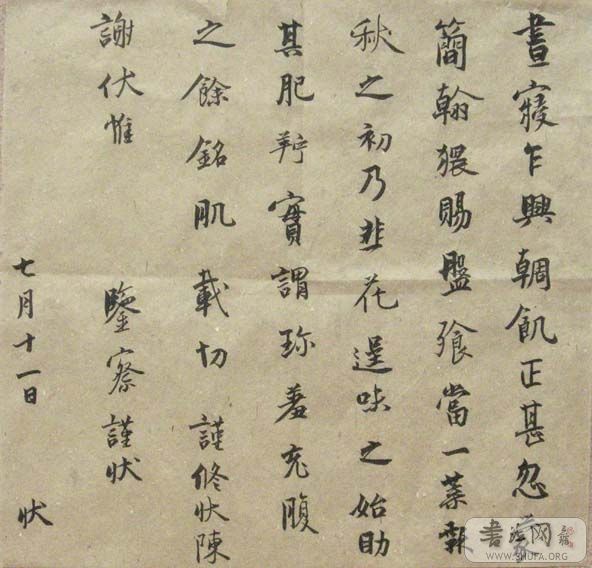 晝寢乍興輖飢正甚忽蒙
簡翰猥賜盤飧當一葉報
秋之初乃韭花逞味之始助
其肥羜實謂珍羞充腹
之餘銘肌載切 謹修狀陳
謝伏惟 鑒察謹狀
七月十一日 狀
書法网
WWW.SHUFA.ORG